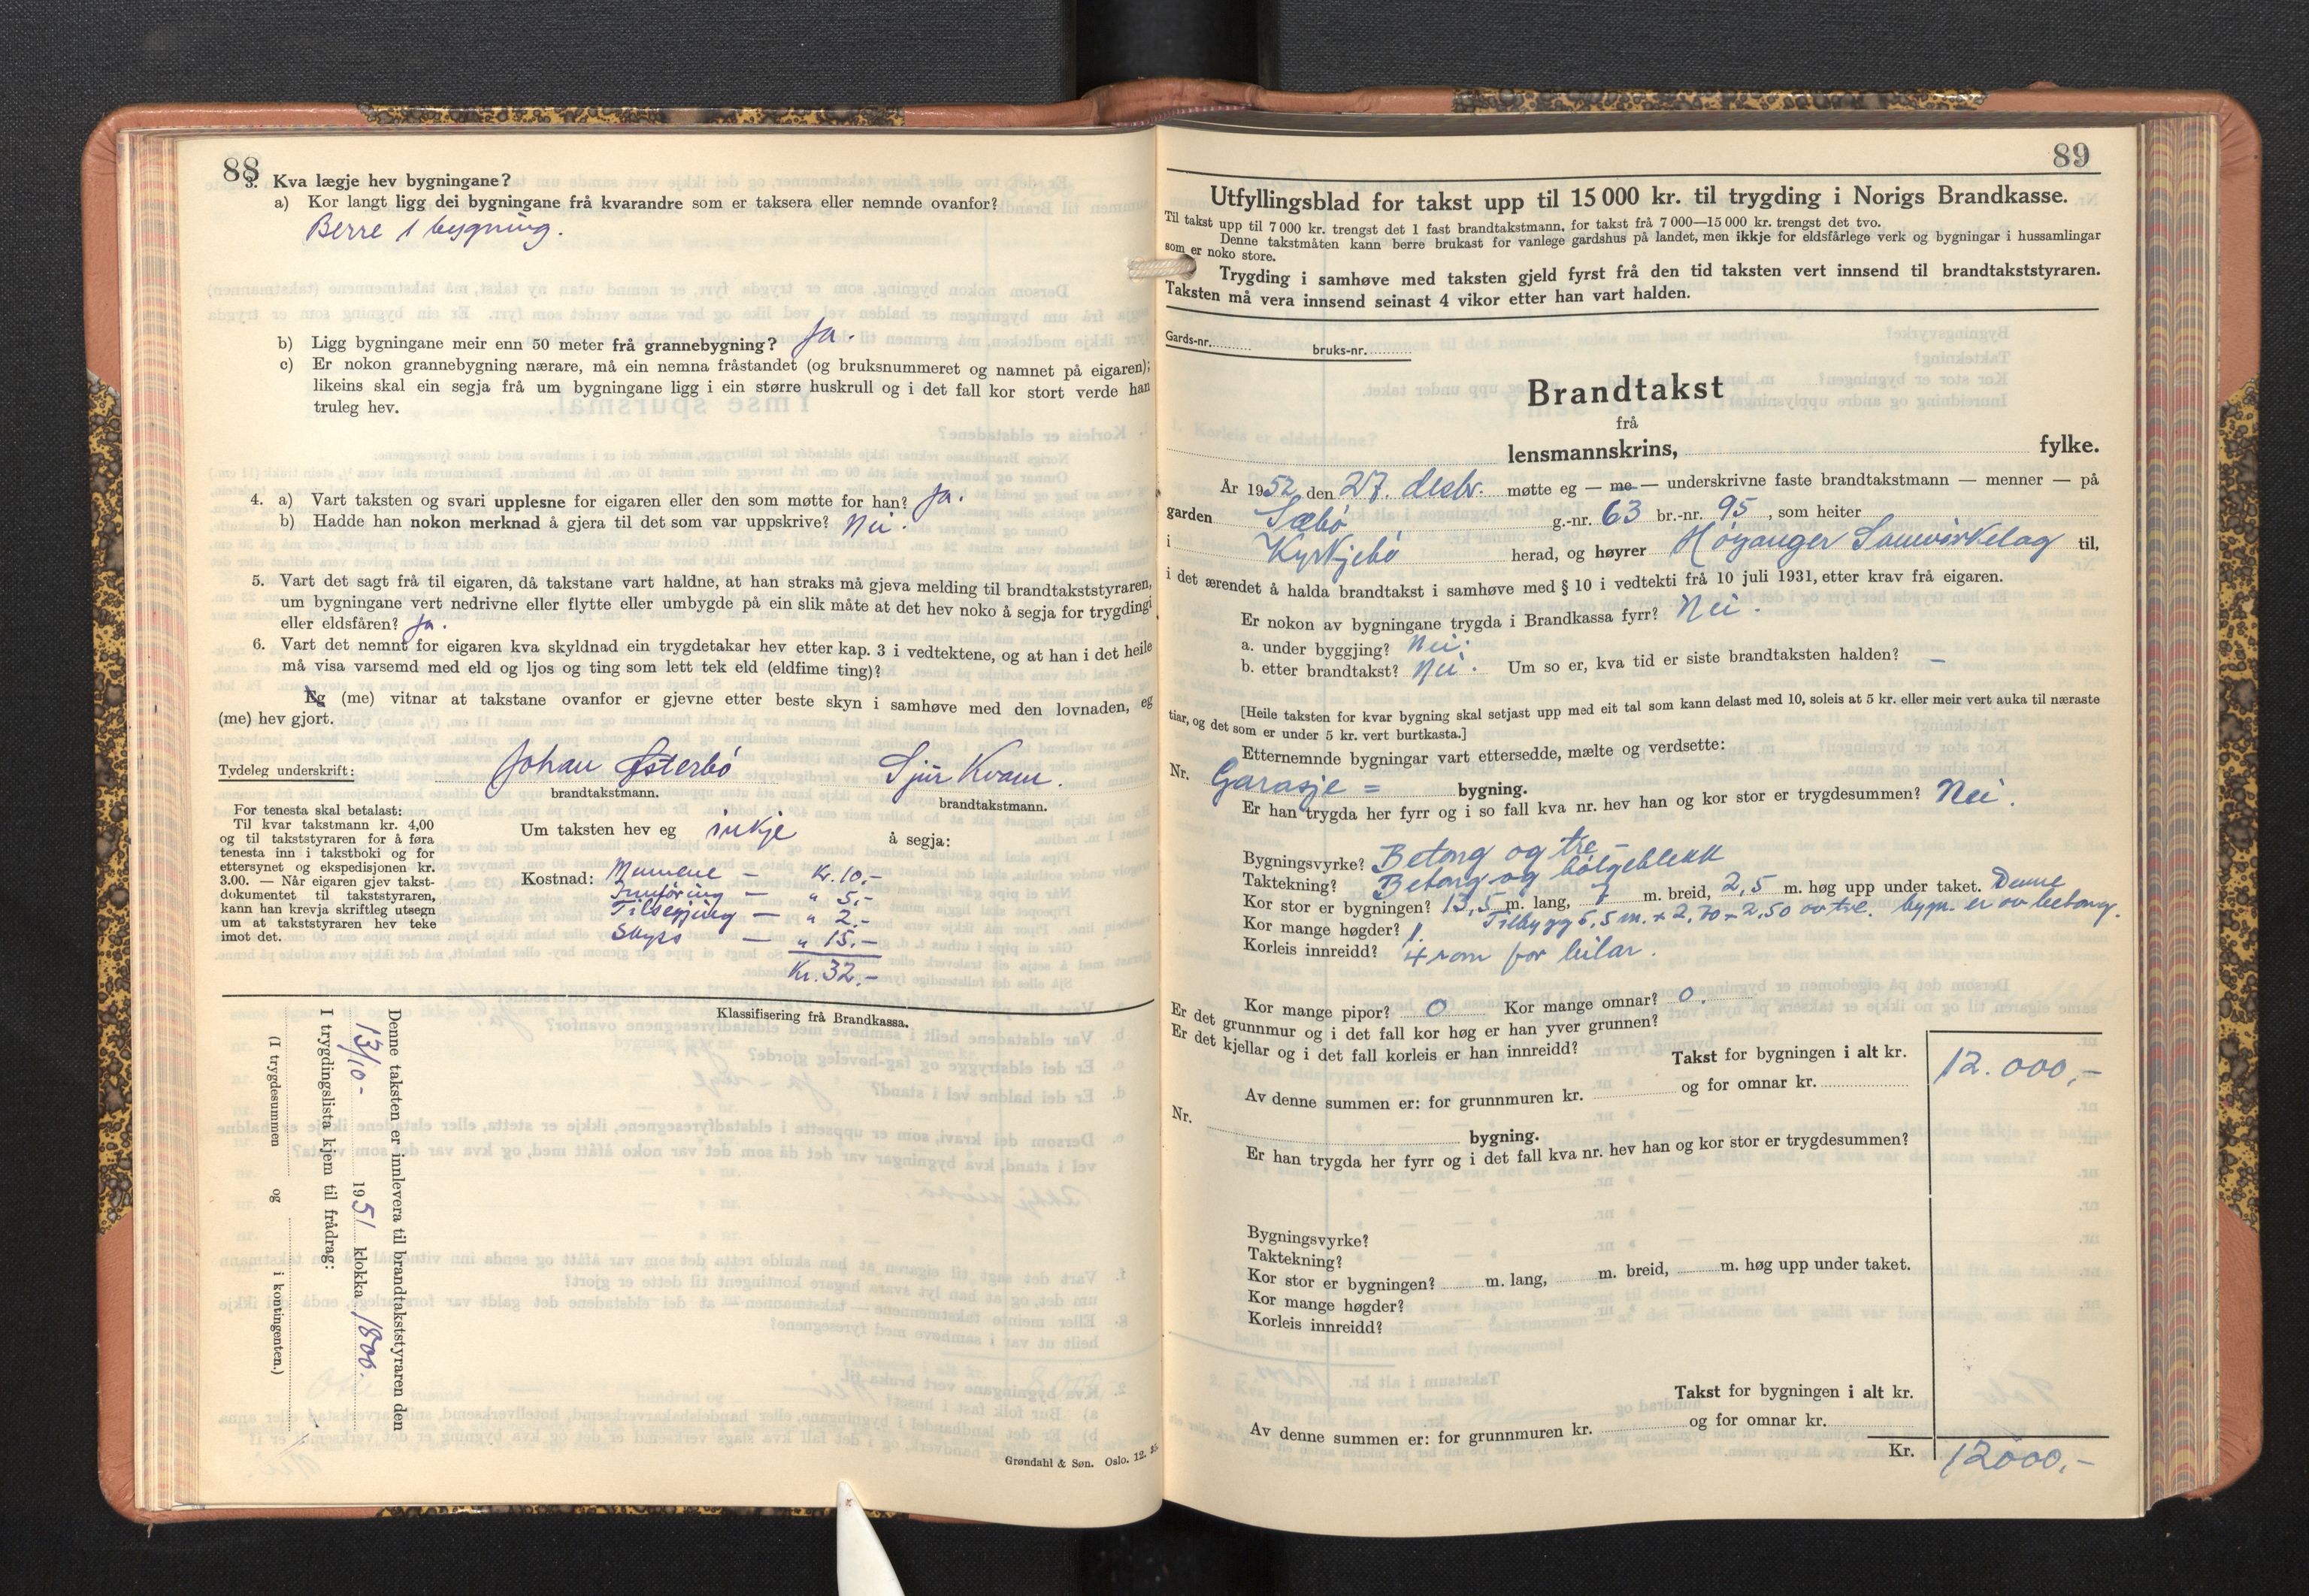 88
3. Kva lægje hev bygningane?
a) Kor langt ligg dei bygningane frå kvarandre som er taksera eller nemnde ovanfor?
Berre 1 bygning.
b) Ligg bygningane meir enn 50 meter frå grannebygning? Ja.
c) Er nokon grannebygning nærare, må ein nemna fråstandet (og bruksnummeret og namnet på eigaren);
likeins skal ein segja frå um bygningane ligg i ein større huskrull og i det fall kor stort verde han
truleg hev.
4. a) Vart taksten og svari upplesne for eigaren eller den som møtte for han? Ja.
b) Hadde han nokon merknad å gjera til det som var uppskrive? Nei.
5. Vart det sagt frå til eigaren, då takstane vart haldne, at han straks må gjeva melding til brandtakststyraren,
um bygningane vert nedrivne eller flytte eller umbygde på ein slik måte at det hev noko å segja for trygdingi
eller eldsfåren? Ja.
6. Vart det nemnt for eigaren kva skyldnad ein trygdetakar hev etter kap. 3 i vedtektene, og at han i det heile
må visa varsemd med eld og ljos og ting som lett tek eld (eldfime ting)?
Eg (me) vitnar at takstane ovanfor er gjevne etter beste skyn i samhøve med den lovnaden, eg
(me) hev gjort.
Tydeleg underskrift: Johan Østerbø Sjur Kvam.
brandtakstmann. brandtakstmann.
For tenesta skal betalast:
Til kvar takstmann kr. 4,00
og til takststyraren for å føra
tenesta inn i takstboki og for
ettersynet og ekspedisjonen kr.
3.00. — Når eigaren gjev takst-
dokumentet til takststyraren,
kann han krevja skriftleg utsegn
um at takststyraren hev teke
imot det.
Um taksten hev eg inkje å segja:
Kostnad: Mennene — Kr. 10.-
Innføring — " 5.-
Tilsegjing — " 2.-
Skyss — " 15.-
Kr. 32.-
Klassifisering frå Brandkassa.
Denne taksten er innlevera til brandtakststyraren den
13/10- 1951 klokka 1800.
I trygdingslista kjem til frådrag:
(I trygdesummen og i kontingenten.)
Grøndahl & Søn. Oslo. 12.
89
Utfyllingsblad for takst upp til 15 000 kr. til trygding i Norigs Brandkasse.
Til takst upp til 7 000 kr. trengst det 1 fast brandtakstmann, for takst frå 7 000—15 000 kr. trengst det tvo.
Denne takstmåten kann berre brukast for vanlege gardshus på landet, men ikkje for eldsfårlege verk og bygningar i hussamlingar
som er noko store.
Trygding i samhøve med taksten gjeld fyrst frå den tid taksten vert innsend til brandtakststyraren.
Taksten må vera innsend seinast 4 vikor etter han vart halden.
Gards-nr. bruks-nr.
Brandtakst
frå
lensmannskrins, fylke.
År 1952 den 27. desbr. møtte eg — me — underskrivne faste brandtakstmann — menner — på
garden Sæbø g.-nr. 63 br.-nr. 95, som heiter
i Kyrkjebø herad, og høyrer Høyanger Samvirkelag til,
i det ærendet å halda brandtakst i samhøve med § 10 i vedtekti frå 10 juli 1931, etter krav frå eigaren.
Er nokon av bygningane trygda i Brandkassa fyrr? Nei.
a. under byggjing? Nei.
b. etter brandtakst? Nei. Um so er, kva tid er siste brandtaksten halden? —
[Heile taksten for kvar bygning skal setjast upp med eit tal som kann delast med 10, soleis at 5 kr. eller meir vert auka til næraste
tiar, og det som er under 5 kr. vert burtkasta.]
Etternemnde bygningar vart ettersedde, mælte og verdsette:
Nr. Garasje = bygning.
Er han trygda her fyrr og i so fall kva nr. hev han og kor stor er trygdesummen? Nei.
Bygningsvyrke? Betong og tre —
Taktekning? Betong og bølgeblekk
Kor stor er bygningen? 13,5 m. lang, 7 m. breid, 2,5 m. høg upp under taket. Denne
Kor mange høgder? 1. Tilbygg 5,5 m. x 2,70 - 2,50 av tre. bygn. er av betong.
Korleis innreidd? 4 rom for bilar.
Kor mange pipor? 0 Kor mange omnar? 0.
Er det grunnmur og i det fall kor høg er han yver grunnen?
Er det kjellar og i det fall korleis er han innreidd?
Takst for bygningen i alt kr. 12.000,-
Av denne summen er: for grunnmuren kr. og for omnar kr.
Nr. bygning.
Er han trygda her fyrr og i det fall kva nr. hev han og kor stor er trygdesummen?
Bygningsvyrke?
Taktekning?
Kor stor er bygningen? m. lang, m. breid, m. høg upp under taket.
Kor mange høgder?
Korleis innreidd?
Takst for bygningen i alt kr.
Av denne summen er: for grunnmuren kr. og for omnar kr.
Kr. 12000,-